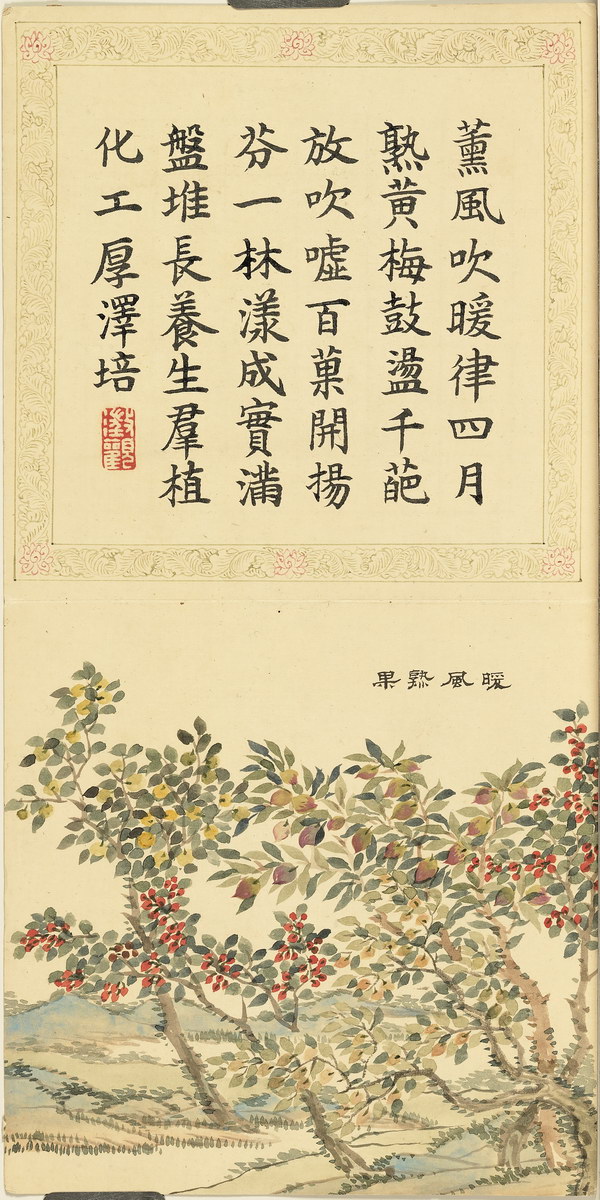 薰風吹暖律四月
熟黃梅鼓盪千葩
放吹噓百菓開揚
芬一林漾成實滿
盤堆長養生羣植
化工厚澤培
暖風熟果